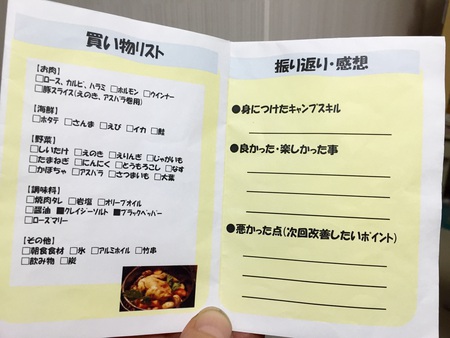 買い物リスト
【お肉】
□ロース、カルビ、ハラミ □ホルモン □ウインナー
□豚スライス(えのき、アスパラ巻用)
【海鮮】
□ホタテ □さんま □えび □イカ □鮭
【野菜】
□しいたけ □えのき □えりんぎ □じゃがいも
□たまねぎ □にんにく □とうもろこし □なす
□かぼちゃ □アスパラ □さつまいも □大葉
【調味料】
□焼肉タレ □岩塩 □オリーブオイル
□醤油 ■クレイジーソルト ■ブラックペッパー
□ローズマリー
【その他】
□朝食食材 □氷 □アルミホイル □竹串
□飲み物 □炭
振り返り・感想
●身につけたキャンプスキル
●良かった・楽しかった事
●悪かった点(次回改善したいポイント)